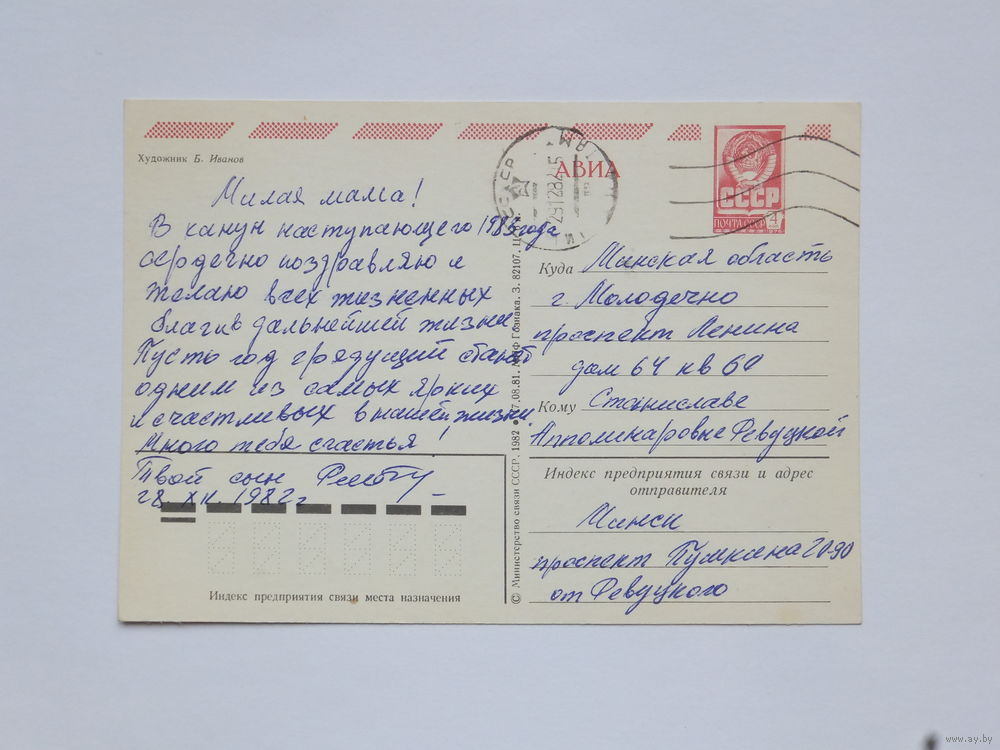 Художник Б. Иванов
АВИА
СССР
ПОЧТА СССР
Милая мама!
В канун наступающего 1983 года
сердечно поздравляю и
желаю всех жизненных
благ в дальнейшей жизни
Пусть год грядущий станет
одним из самых ярких
и счастливых в нашей жизни.
Много тебя счастья!
Твой сын
28. XII. 1982 г
Индекс предприятия связи места назначения
© Министерство связи СССР. 1982
Куда Минская область
г. Молодечно
проспект Ленина
дом 64 кв 60
Кому Станиславе
Апполинаровне Ревуцкой
Индекс предприятия связи и адрес
отправителя
Минск
проспект Пушкина 20-90
от Ревуцкого
www.ay.by